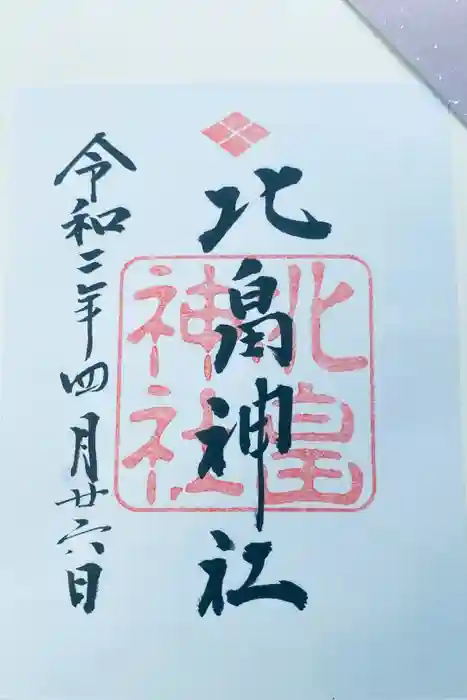 北畠神社
北畠
神社
令和二年四月廿六日